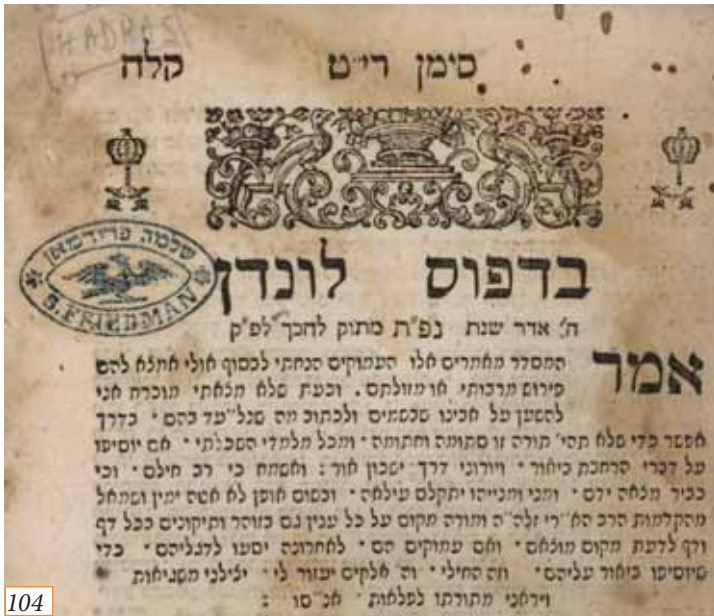 סימן רי״ט קלה
שלמה פרידמאן
S. FRIEDMAN
בדפוס לונדן
ה׳ אדר שנת נפ״ת מתוק לחכך לפ״ק
אמר המסדר מאמרים אלו העמוקים הנחתי לכסוף אולי אמלא להם
פירוש מרבותי או מזולתם. וכעת שלא מלאתי מוכרח אני
להשען על אבינו שבשמים ולכתוב מה שנל״עד בהם י בדרך
אפשר כדי שלא תהי׳ תורה זו סתומה וחתומה י ומכל מלמדי השכלתי י אם יוסיפו
על דברי הרחבת ביאור י ויורוני דרך ישכון אור : ואשמח כי רב חילם י וכי
כביר מלאה ידם י ומני ומנייהו יתקלם עילאה י ובשום אופן לא אטה ימין ושמאל
מהקדמות הרב הא״רי זלה״ה ומורה מקום על כל ענין גם בזוהר ותיקונים בכל דף
ודף לדעת מקום מוצאם י ואם עמוקים הם י לאחרונה יסעו לדגליהם י כדי
שיוסיפו ביאור עליהם י וזה החילי י וה׳ אלקים יעזור לי י יצילני משגיאות
ויראני מתורתו נפלאות י אנ״סו :
104